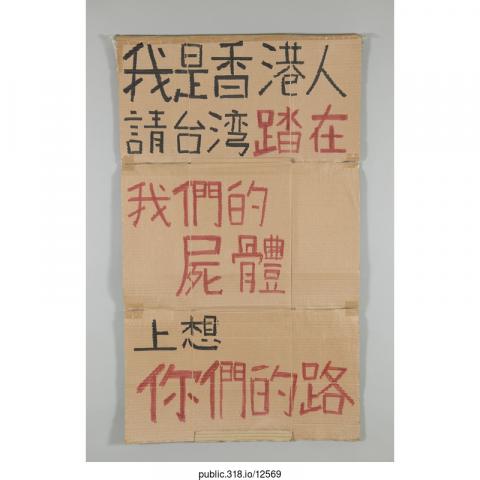 我是香港人
請台湾踏在
我們的
屍體
上想
你們的路
public.318.io/12569